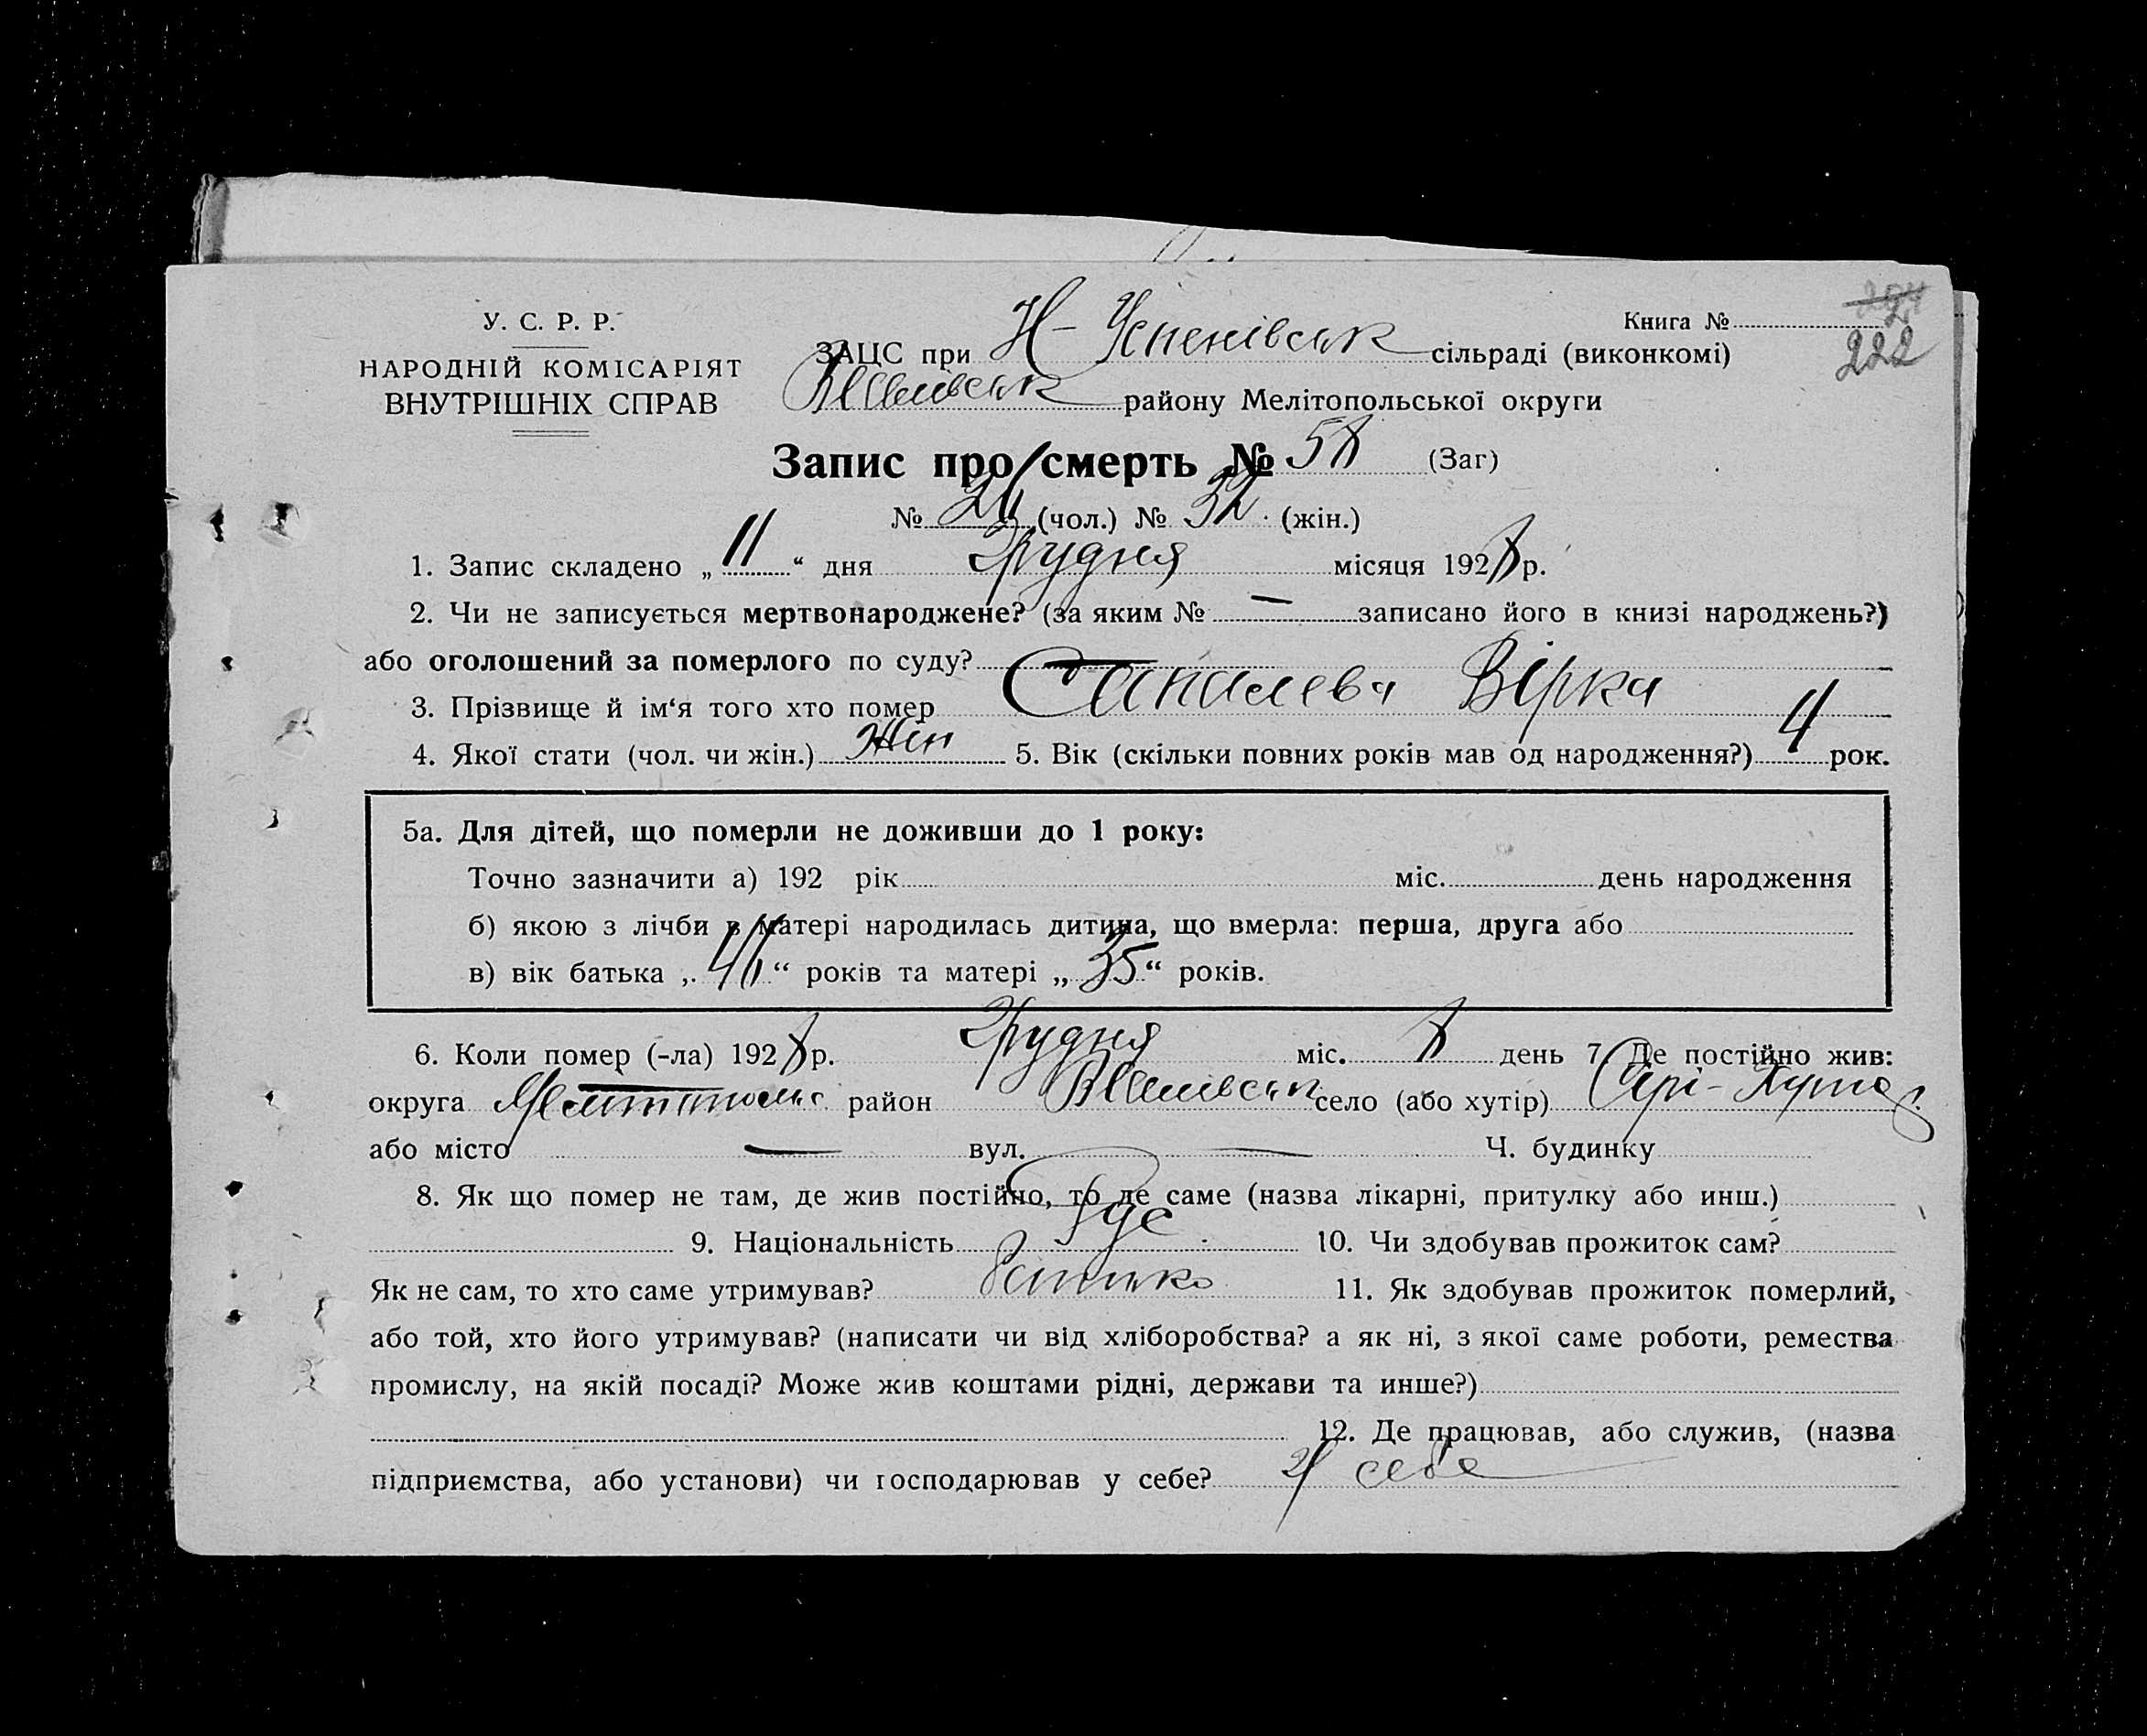 У. С. Р. Р.
НАРОДНІЙ КОМІСАРІЯТ
ВНУТРІШНІХ СПРАВ
Книга №
222
ЗАЦС при Н-Успенівськ сільраді (виконкомі)
району Мелітопольської округи
Запис про смерть № 58 (Заг)
№ 26 (чол.) № 32 (жін.)
1. Запис складено „ 11 “ дня Грудня місяця 1928 р.
2. Чи не записується мертвонароджене? (за яким № — записано його в книзі народжень?)
або оголошений за померлого по суду?
3. Прізвище й ім‘я того хто помер Вірка
4. Якої стати (чол. чи жін.) Жін 5. Вік (скільки повних років мав од народження?) 4 рок.
5а. Для дітей, що померли не доживши до 1 року:
Точно зазначити а) 192 рік міс. день народження
б) якою з лічби в матері народилась дитина, що вмерла: перша, друга або
в) вік батька „ “ років та матері „ 35 “ років.
6. Коли помер (-ла) 1928 р. Грудня міс. 8 день 7. Де постійно жив:
округа район село (або хутір)
або місто — вул. — Ч. будинку
8. Як що помер не там, де жив постійно, то де саме (назва лікарні, притулку або инш.)
9. Національність Рус 10. Чи здобував прожиток сам?
Як не сам, то хто саме утримував? батько 11. Як здобував прожиток померлий,
або той, хто його утримував? (написати чи від хліборобства? а як ні, з якої саме роботи, ремества
промислу, на якій посаді? Може жив коштами рідні, держави та инше?)
12. Де працював, або служив, (назва
підприємства, або установи) чи господарював у себе? У себе